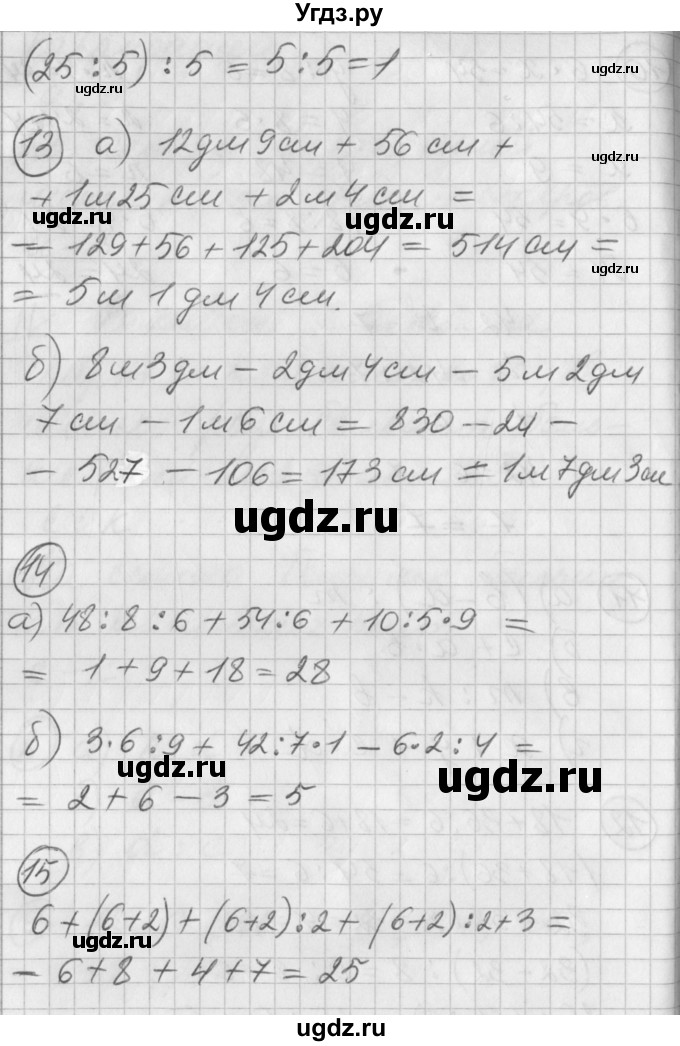 Угдз.ру
(25 : 5) : 5 = 5 : 5 = 1
ugdz.ru
ugdz.ru
13 а) 12дм 9см + 56 см +
ugdz.ru
+ 1м 25 см + 2м 4 см =
ugdz.ru
ugdz.ru
= 129 + 56 + 125 + 204 = 514 см =
ugdz.ru
= 5м 1 дм 4 см.
б) 8м 3дм - 2дм 4см - 5м 2дм
7см - 1м 6 см = 830 - 24 -
- 527 - 106 = 173 см = 1м 7дм 3см
ugdz.ru
14
а) 48 : 8 : 6 + 54 : 6 + 10 : 5 · 9 =
= 1 + 9 + 18 = 28
б) 3 · 6 : 9 + 42 : 7 · 1 - 6 · 2 : 4 =
ugdz.ru
ugdz.ru
= 2 + 6 - 3 = 5
15
6 + (6+2) + (6+2) : 2 + (6+2) : 2 + 3 =
ugdz.ru
- 6 + 8 + 4 + 7 = 25
ugdz.ru